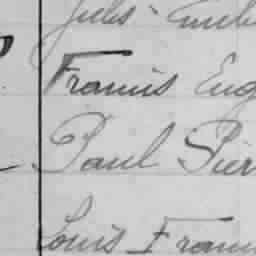 Jules Emile
Francis Eug
Paul Pier
Louis Fran